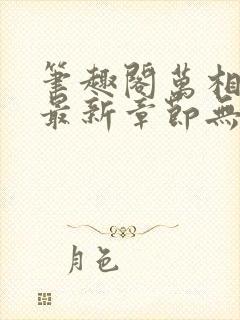 筆趣閣萬相
最新章節無
月色